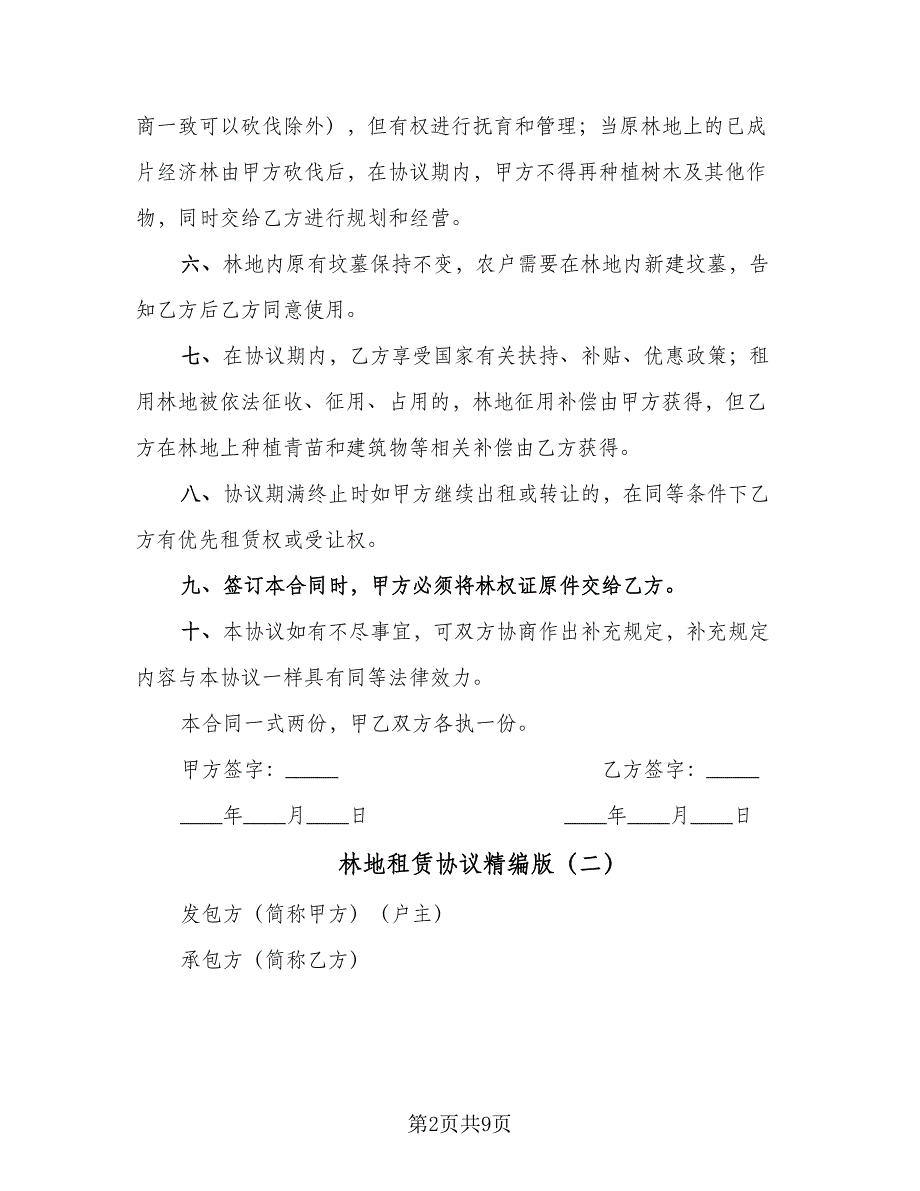 商一致可以砍伐除外），但有权进行抚育和管理；当原林地上的已成
片经济林由甲方砍伐后，在协议期内，甲方不得再种植树木及其他作
物，同时交给乙方进行规划和经营。
六、林地内原有坟墓保持不变，农户需要在林地内新建坟墓，告
知乙方后乙方同意使用。
七、在协议期内，乙方享受国家有关扶持、补贴、优惠政策；租
用林地被依法征收、征用、占用的，林地征用补偿由甲方获得，但乙
方在林地上种植青苗和建筑物等相关补偿由乙方获得。
八、协议期满终止时如甲方继续出租或转让的，在同等条件下乙
方有优先租赁权或受让权。
九、签订本合同时，甲方必须将林权证原件交给乙方。
十、本协议如有不尽事宜，可双方协商作出补充规定，补充规定
内容与本协议一样具有同等法律效力。
本合同一式两份，甲乙双方各执一份。
甲方签字：_____ 乙方签字：_____
____年____月____日 ____年____月____日
林地租赁协议精编版（二）
发包方（简称甲方）（户主）
承包方（简称乙方）
第2页共9页